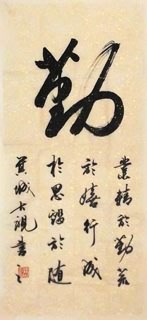 勤
業精於勤荒
於嬉行成
於思毀於随
城大書